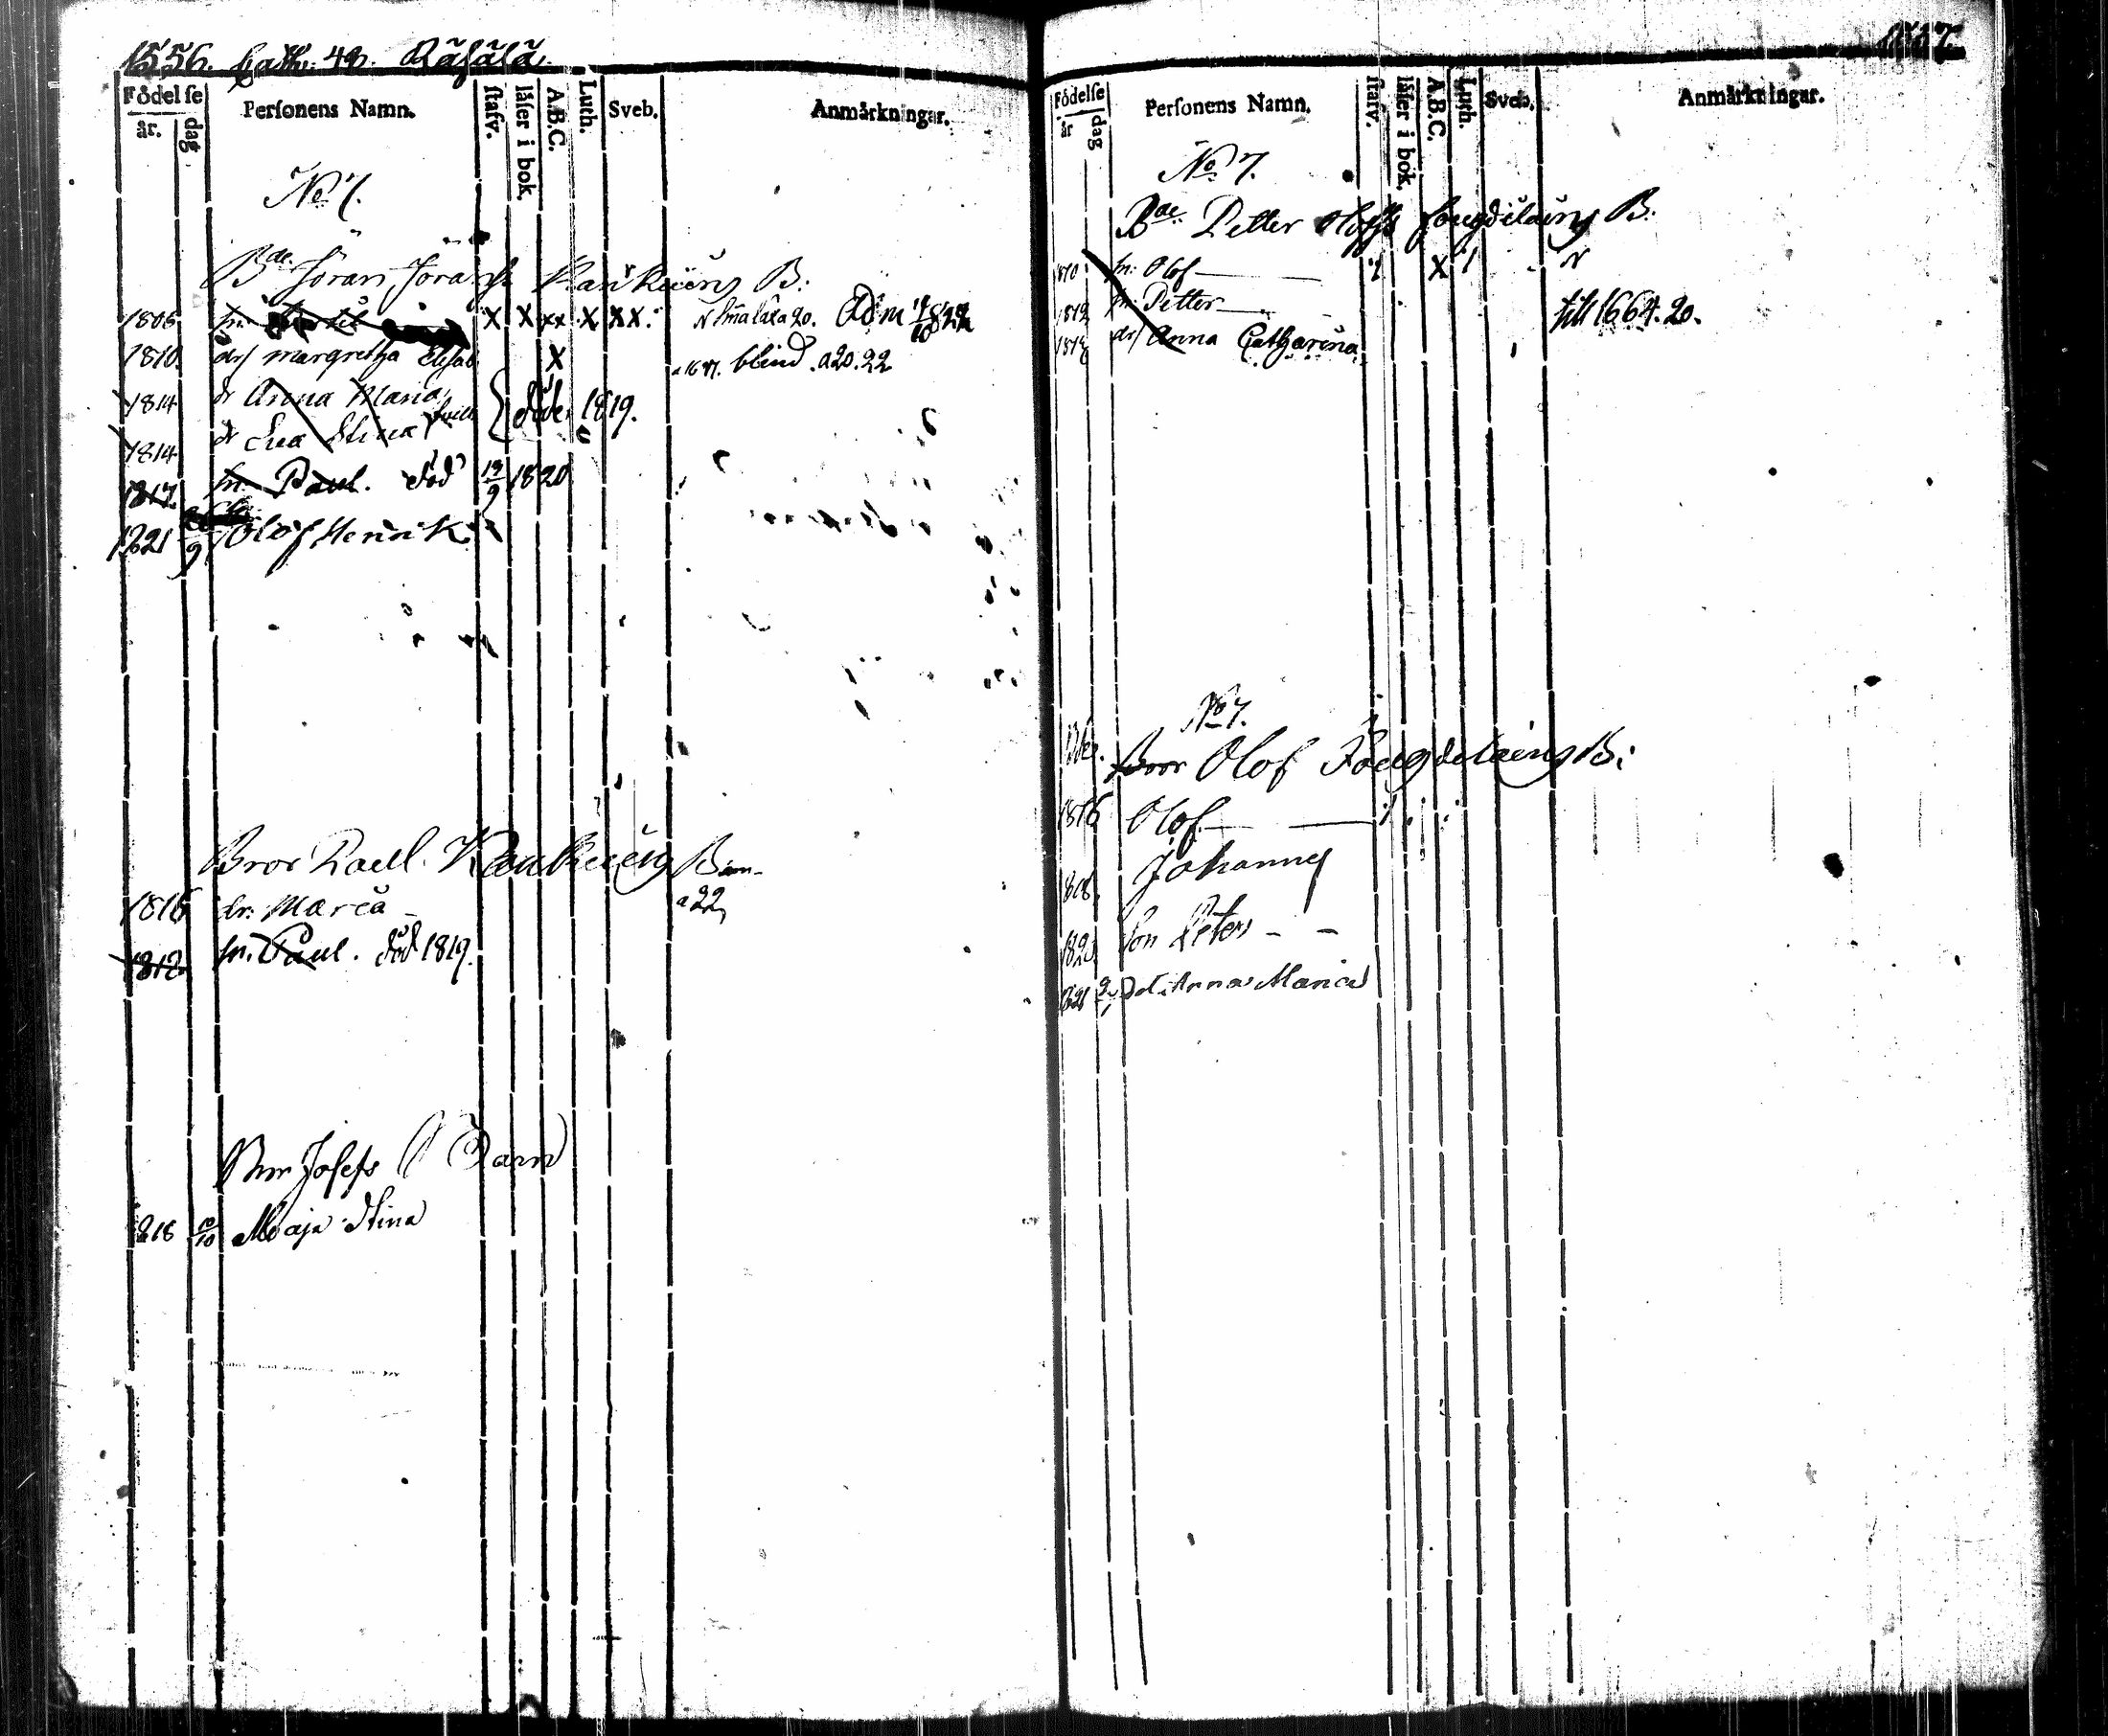 1556. 48. Räsälä
Födelse
år. dag
Personens Namn.
stafv.
låser i bok.
A.B.C.
Luth.
Sveb.
Anmårkningar.
No 7.
Bde Jöran Jöranss. B:
1806 sn: X X xx X XX. 20. Adm 1822
1810. dr/ margretha Elisab X blind. a20.22
1814 dr Anna Maria
1814 dr Eva Stina död 1819.
1817. sn. Paul. död 19/9 1820
1821 9 Olof Henrik
Bror Paul B
1816 dr: Maria a22
1818 sn. Paul. död 1819.
Bror Josefs Barn
1818 10/10 Maja Stina
Födelse
år dag
Personens Namn.
stafv.
låser i bok.
A.B.C.
Luth.
Sveb.
Anmårkningar.
No 7.
Bde Petter Olofss B:
1810 sn: Olof X
1812 sn: Petter till 1664. 20.
1818 dr/ Anna Catharina
No 7.
Bror Olof B:
1816 Olof
1818 Johannes
1820 Son Peter
1821 dot. Anna Maria